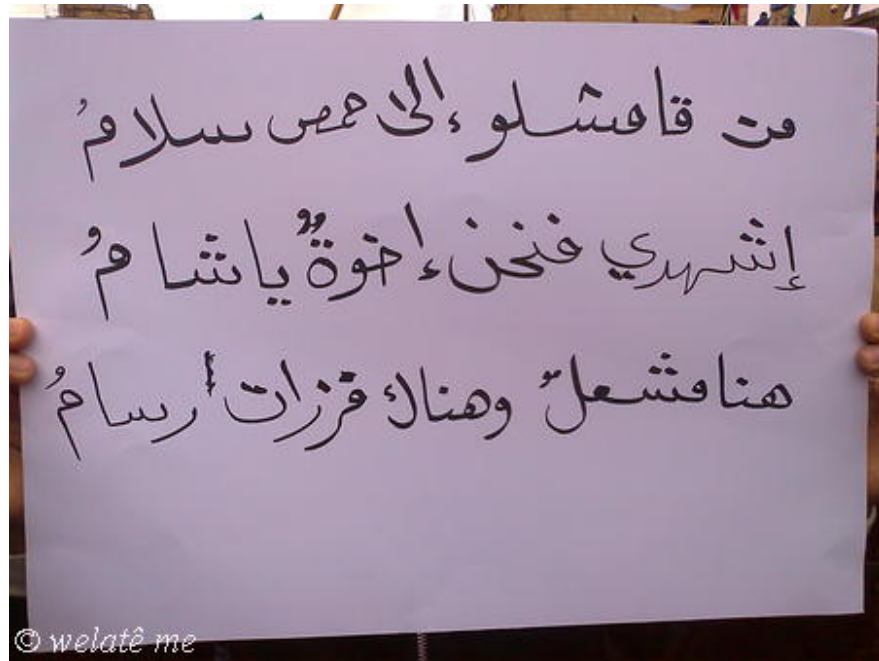 من قامشلو إلى حمص سلامُ
إشهدي فنحن إخوةٌ ياشامُ
هنا مشعلٌ وهناك فرزات أرسامُ
© welatê me